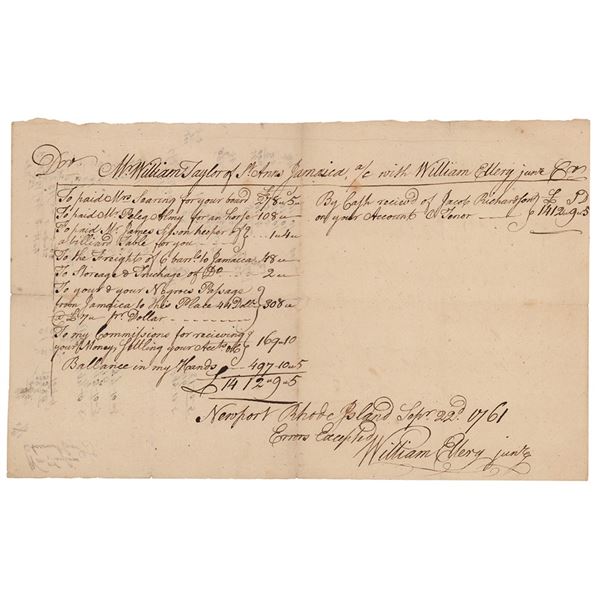 Dr. Mr William Taylor of St Anns Jamaica, a/c with William Ellery junr. Cr.
To paid Mrs Searing for your board £ 278 " 5
To paid Mr Peleg Almy for an horse 108 "
To paid Mr James keeper of
a billiard Table for you } 1 " 4 "
To the Freights of 6 barrls to Jamaica 48 "
To Storeage & Truckage of Do 2 "
To your & your Negroes Passage
from Jamaica to this Place 44 Dolls
@ £7 " pr. Dollar } 308 "
To my Commissions for recieving
your Money, settling your Accts &c } 169 - 10
Ballance in my Hands 497 - 10 " 5
£ 1412 " 9 " 5
By Cash reciev'd of Jacob Richardson
on your Account O Tenor } £ 1412 " 9 " 5
Newport Rhode Island Sepr. 22d. 1761
Errors Excepted
William Ellery junr